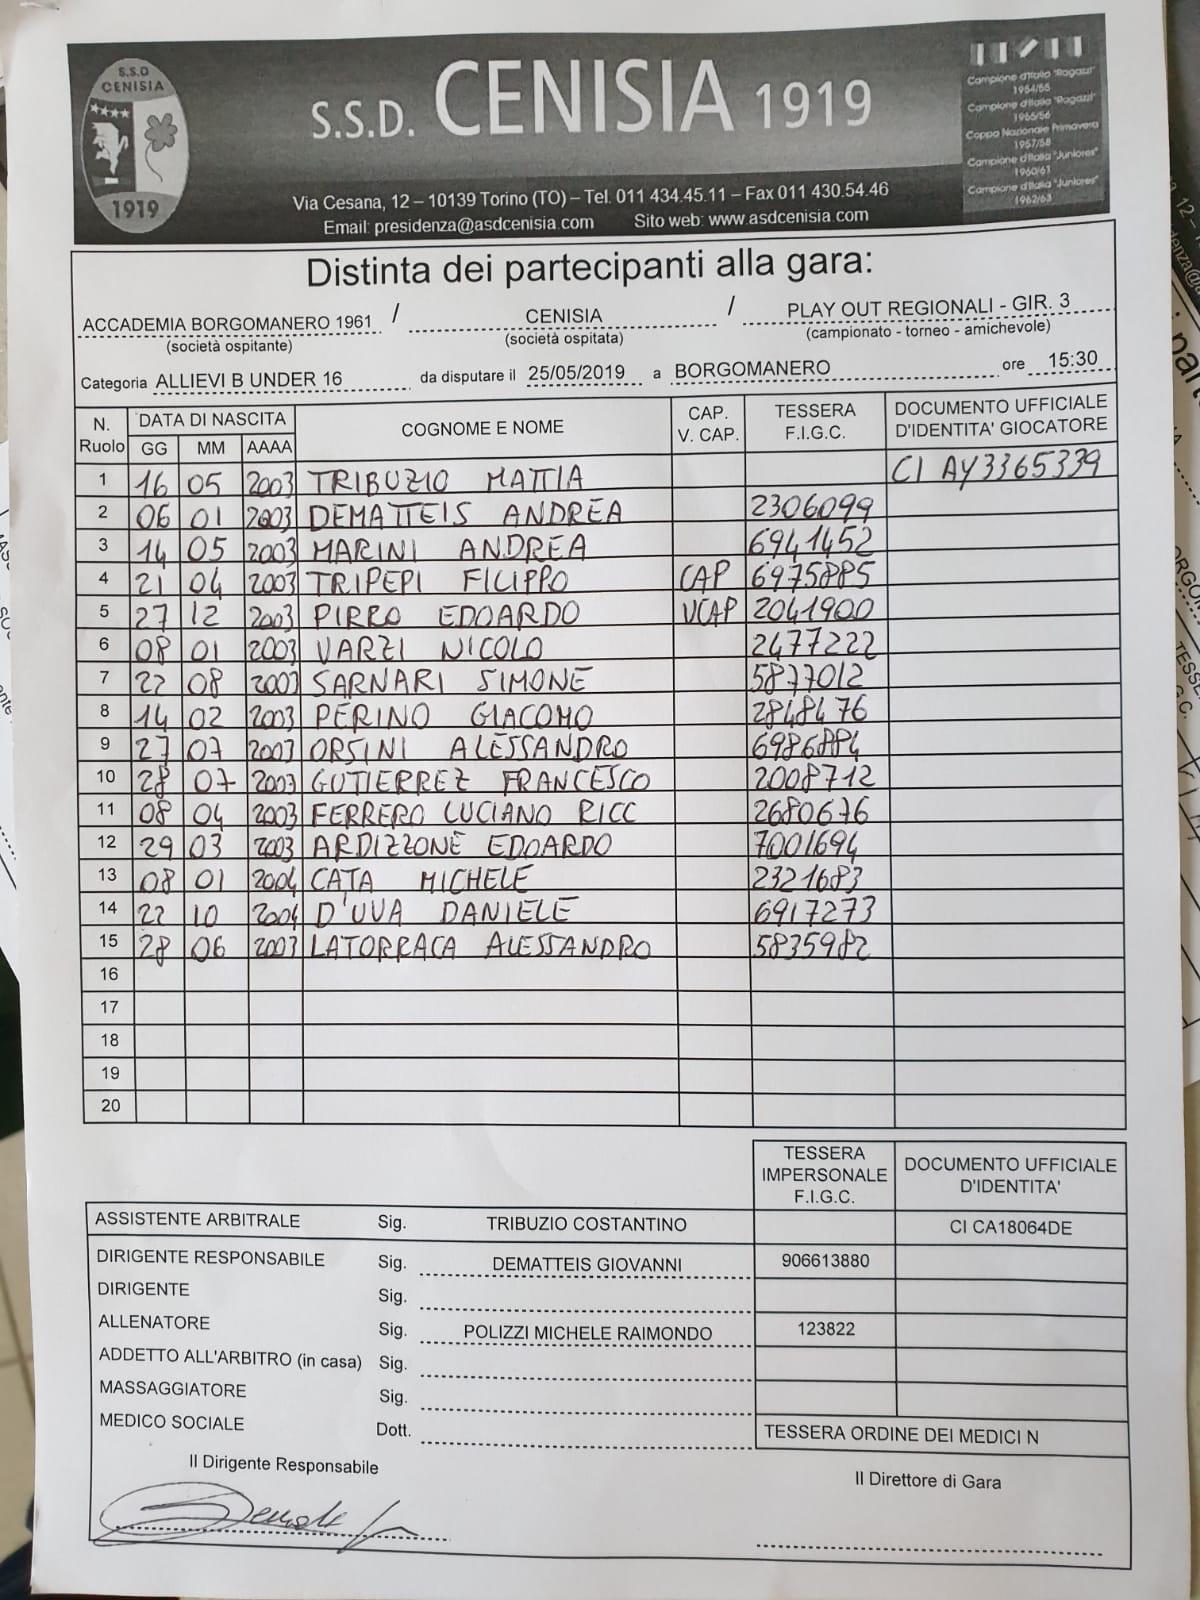 S.S.D
CENISIA
1919
S.S.D. CENISIA 1919
Via Cesana, 12 – 10139 Torino (TO) – Tel. 011 434.45.11 – Fax 011 430.54.46
Email: presidenza@asdcenisia.com Sito web: www.asdcenisia.com
Campione d'Italia "Ragazzi"
1964/65
Campione d'Italia "Ragazzi"
1965/66
Coppa Nazionale Primavera
1957/58
Campione d'Italia "Juniores"
1960/61
Campione d'Italia "Juniores"
1962/63
Distinta dei partecipanti alla gara:
ACCADEMIA BORGOMANERO 1961 / CENISIA / PLAY OUT REGIONALI - GIR. 3
(società ospitante) (società ospitata) (campionato - torneo - amichevole)
Categoria ALLIEVI B UNDER 16 da disputare il 25/05/2019 a BORGOMANERO ore 15:30
N. Ruolo DATA DI NASCITA GG MM AAAA COGNOME E NOME CAP. V. CAP. TESSERA F.I.G.C. DOCUMENTO UFFICIALE D'IDENTITA' GIOCATORE
1 16 05 2003 TRIBUZIO MATTIA CI AY3365339
2 06 01 2003 DEMATTEIS ANDREA 2306099
3 14 05 2003 MARINI ANDREA 6941452
4 21 04 2003 TRIPEPI FILIPPO CAP 6975885
5 27 12 2003 PIRRO EDOARDO VCAP 2041900
6 08 01 2003 VARZI NICOLO 2477222
7 22 08 2003 SARNARI SIMONE 5877012
8 14 02 2003 PERINO GIACOMO 2848476
9 27 07 2003 ORSINI ALESSANDRO 6986884
10 28 07 2003 GUTIERREZ FRANCESCO 2008712
11 08 04 2003 FERRERO LUCIANO RICC 2680676
12 29 03 2003 ARDIZZONE EDOARDO 7001694
13 08 01 2004 CATA MICHELE 2321683
14 22 10 2004 D'UVA DANIELE 6917273
15 28 06 2003 LATORRACA ALESSANDRO 5835982
16
17
18
19
20
TESSERA IMPERSONALE F.I.G.C. DOCUMENTO UFFICIALE D'IDENTITA'
ASSISTENTE ARBITRALE Sig. TRIBUZIO COSTANTINO CI CA18064DE
DIRIGENTE RESPONSABILE Sig. DEMATTEIS GIOVANNI 906613880
DIRIGENTE Sig.
ALLENATORE Sig. POLIZZI MICHELE RAIMONDO 123822
ADDETTO ALL'ARBITRO (in casa) Sig.
MASSAGGIATORE Sig.
MEDICO SOCIALE Dott. TESSERA ORDINE DEI MEDICI N
Il Dirigente Responsabile Il Direttore di Gara